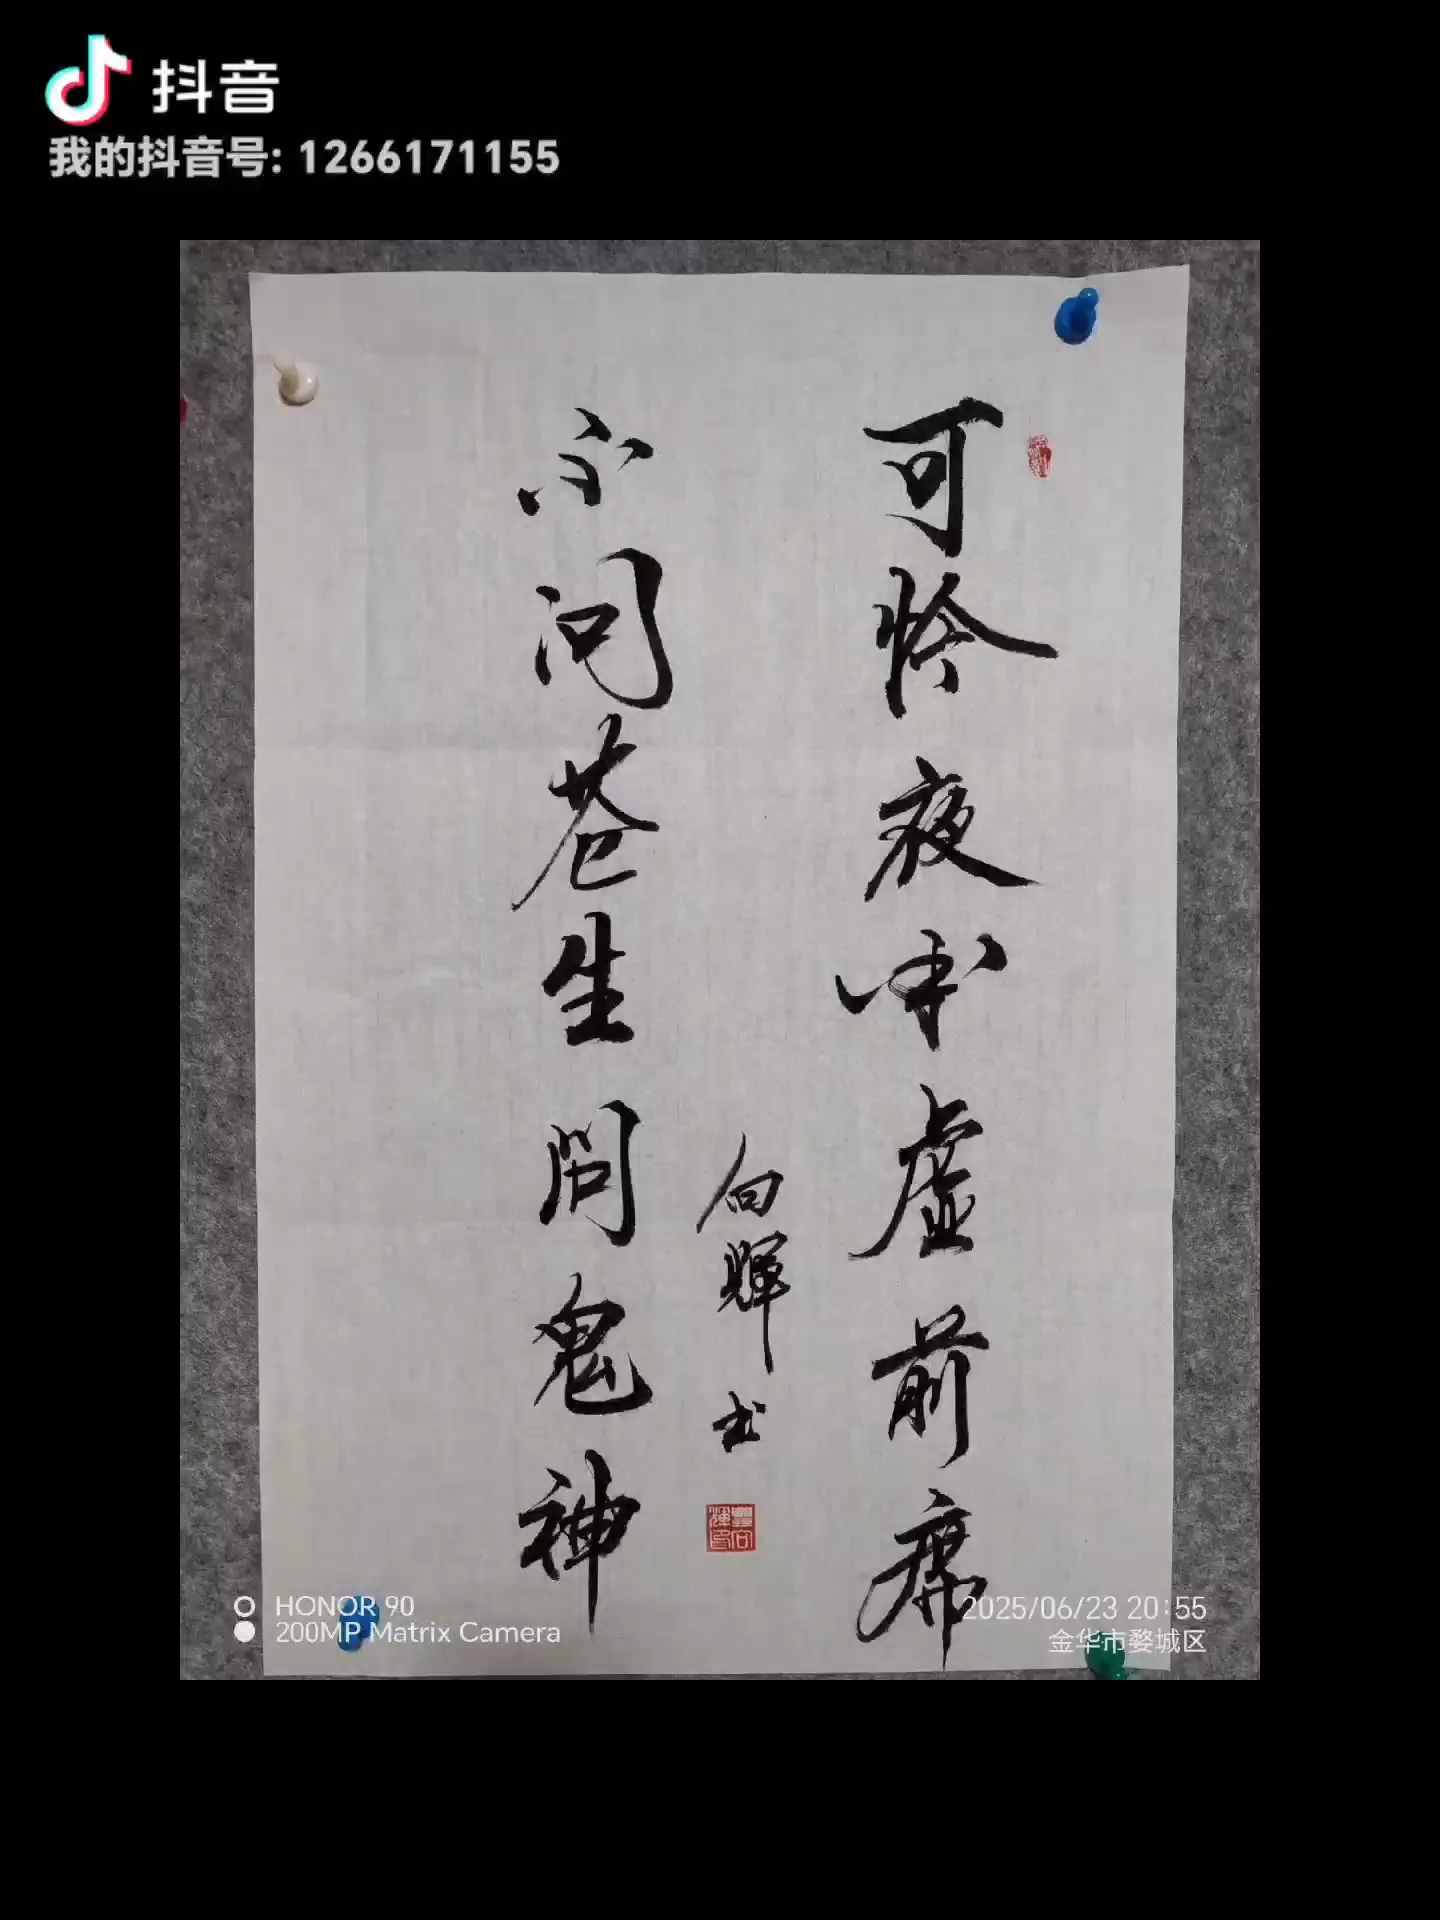 抖音
我的抖音号: 1266171155
可怜夜半虚前席
不问苍生問鬼神
向輝书
HONOR 90
200MP Matrix Camera
2025/06/23 20:55
金华市婺城区